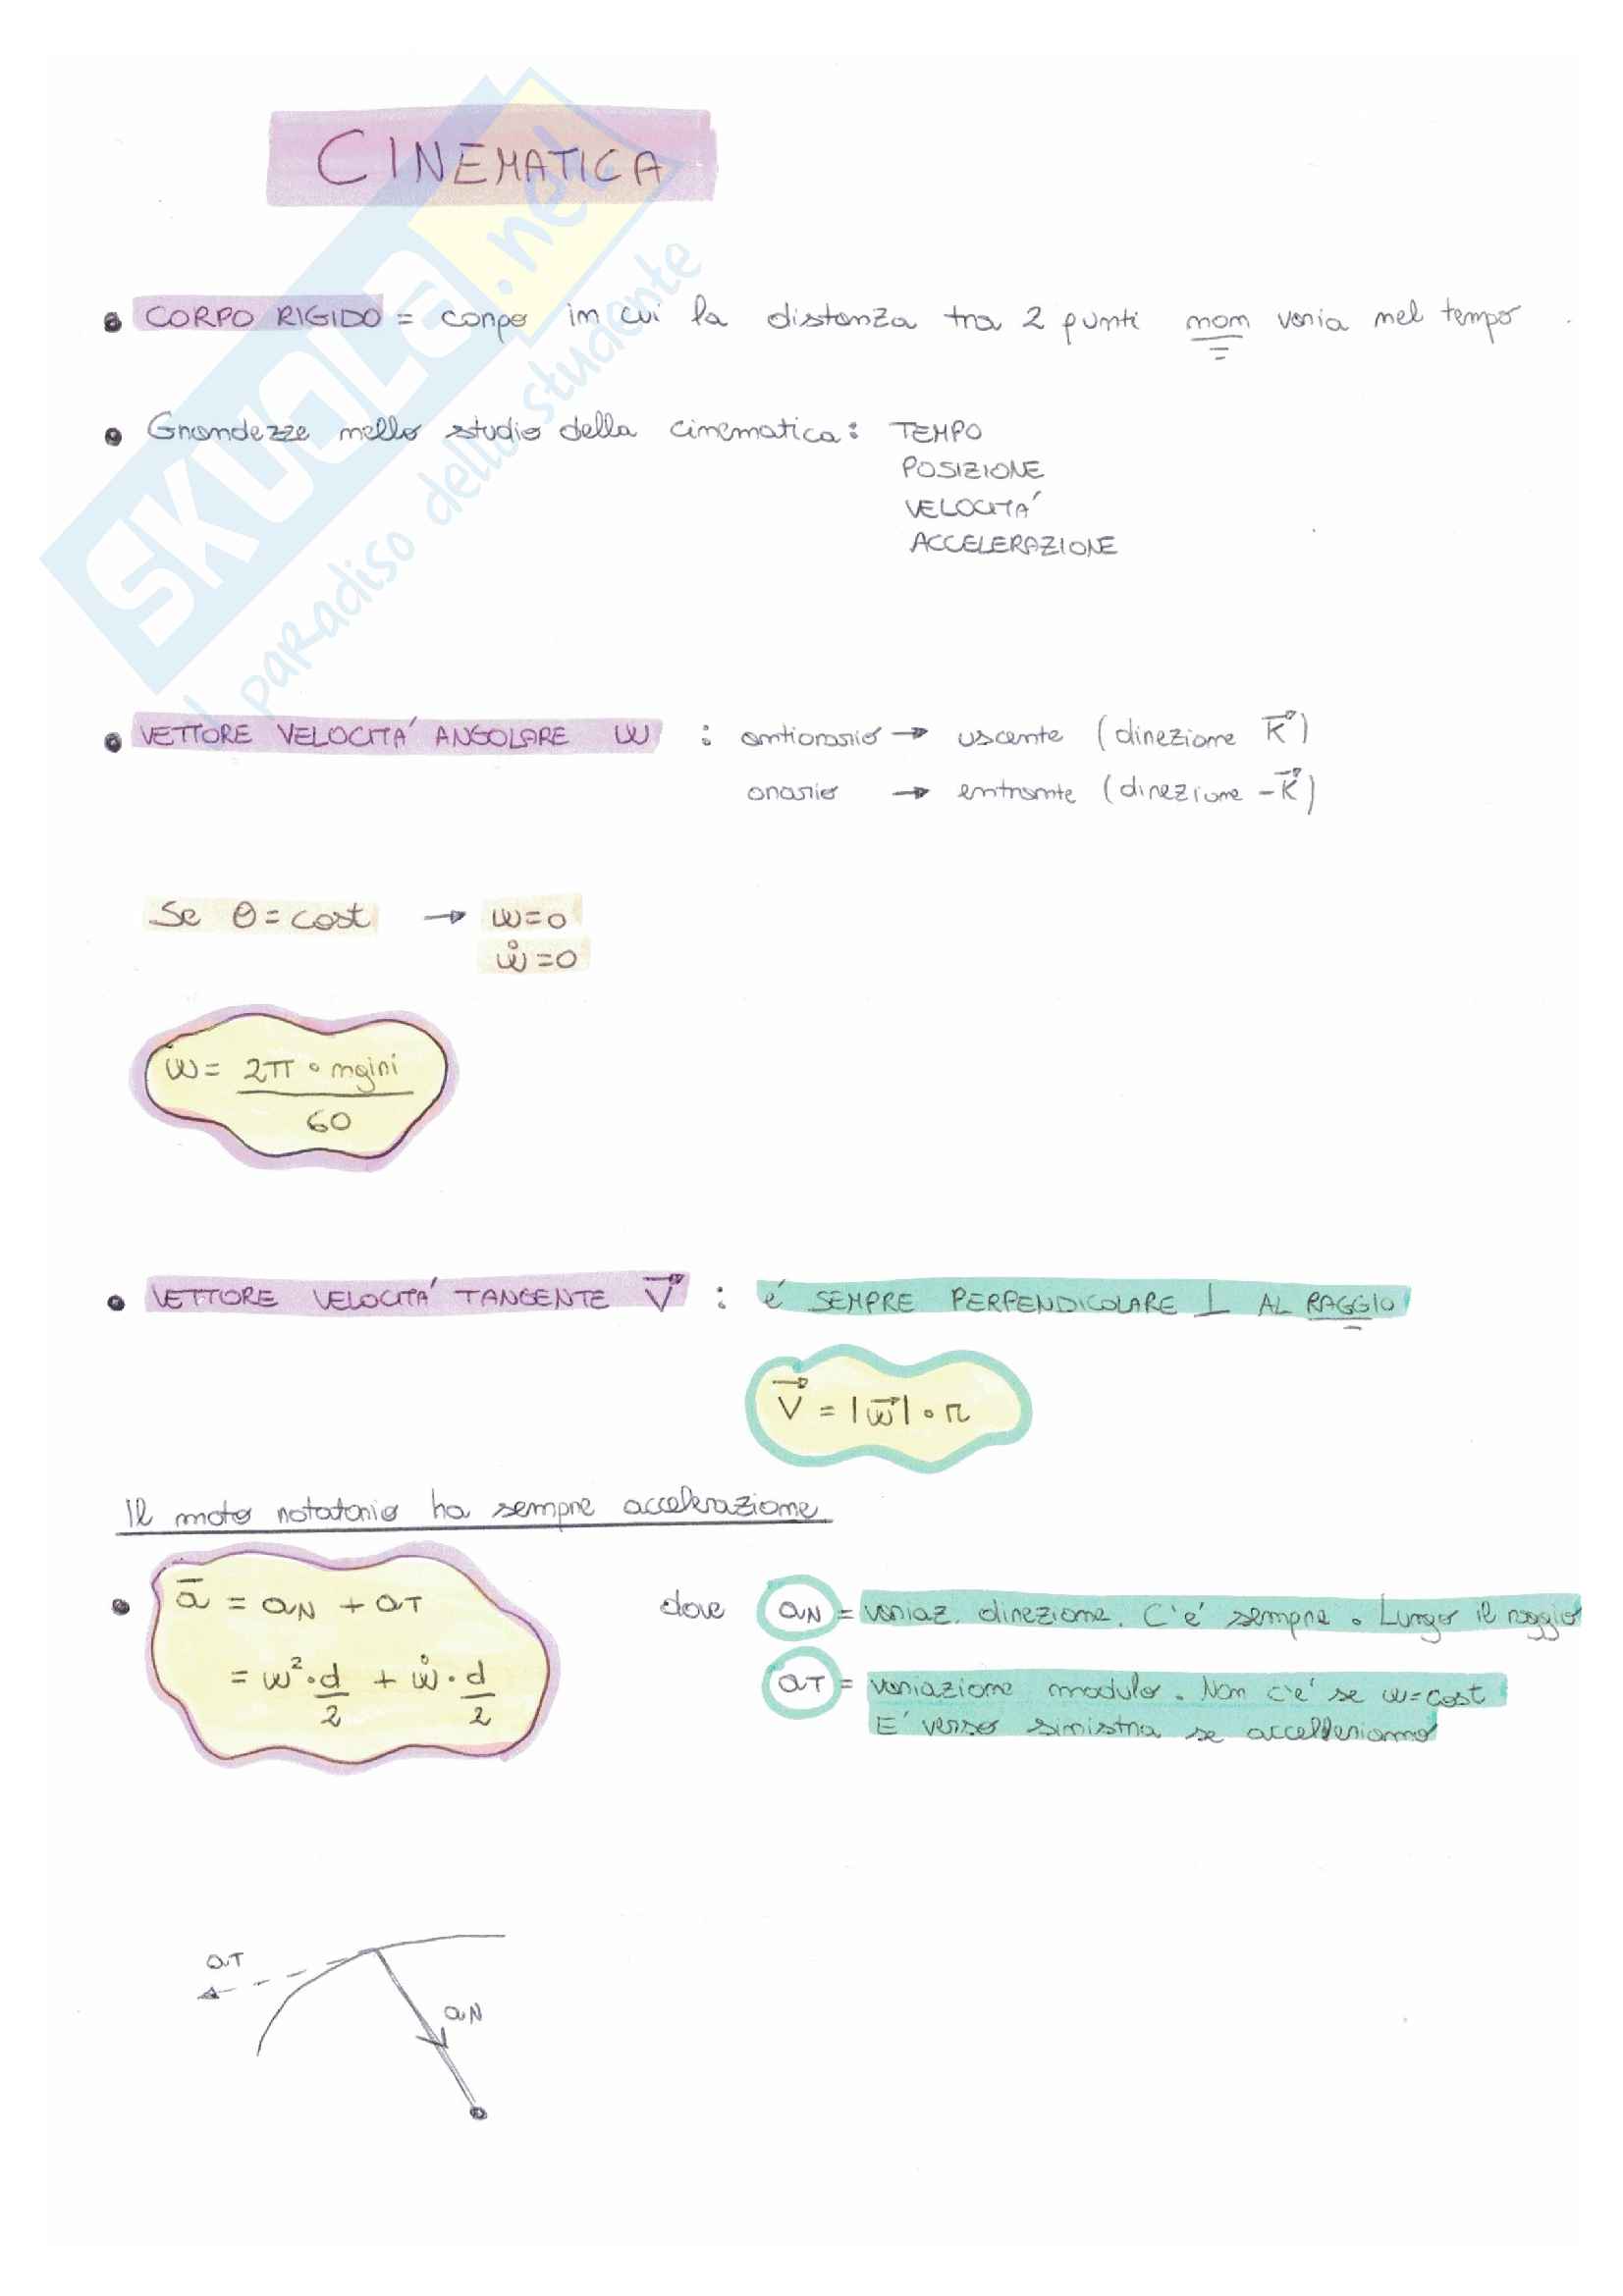 CINEMATICA
SKUOLA.net
il paradiso dello studente
• CORPO RIGIDO = corpo in cui la distanza tra 2 punti non varia nel tempo
• Grandezze nello studio della cinematica: TEMPO
POSIZIONE
VELOCITA'
ACCELERAZIONE
• VETTORE VELOCITA' ANGOLARE ω : antiorario → uscente (direzione K⃗)
orario → entrante (direzione -K⃗)
Se θ = cost → ω=0
ω̇=0
ω = 2π · ngiri
60
• VETTORE VELOCITA' TANGENTE V⃗ : é SEMPRE PERPENDICOLARE ⊥ AL RAGGIO
V⃗ = |ω⃗| · r
Il moto rotatorio ha sempre accelerazione
• a̅ = aN + aT dove aN = variaz. direzione. C'é sempre. Lungo il raggio
= ω²·d/2 + ω̇·d/2 aT = variazione modulo. Non c'é se ω=cost
E' verso sinistra se acceleriamo
aT
aN